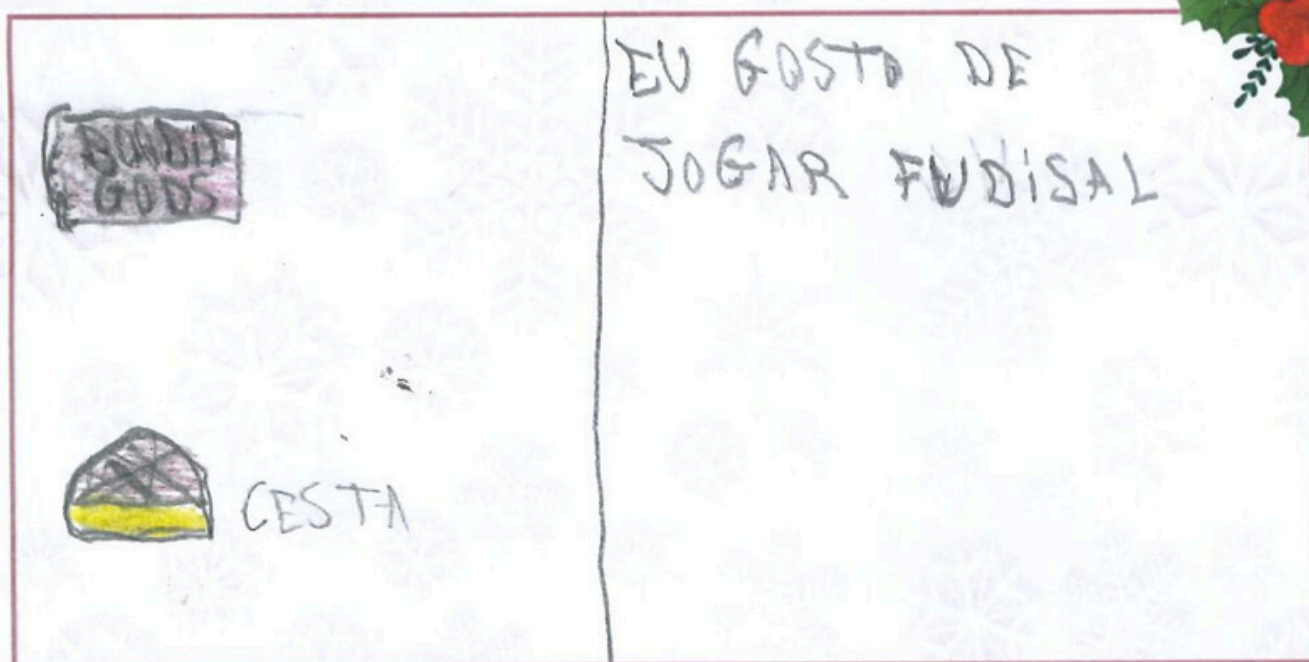 GODS
CESTA
EU GOSTO DE
JOGAR FUDISAL